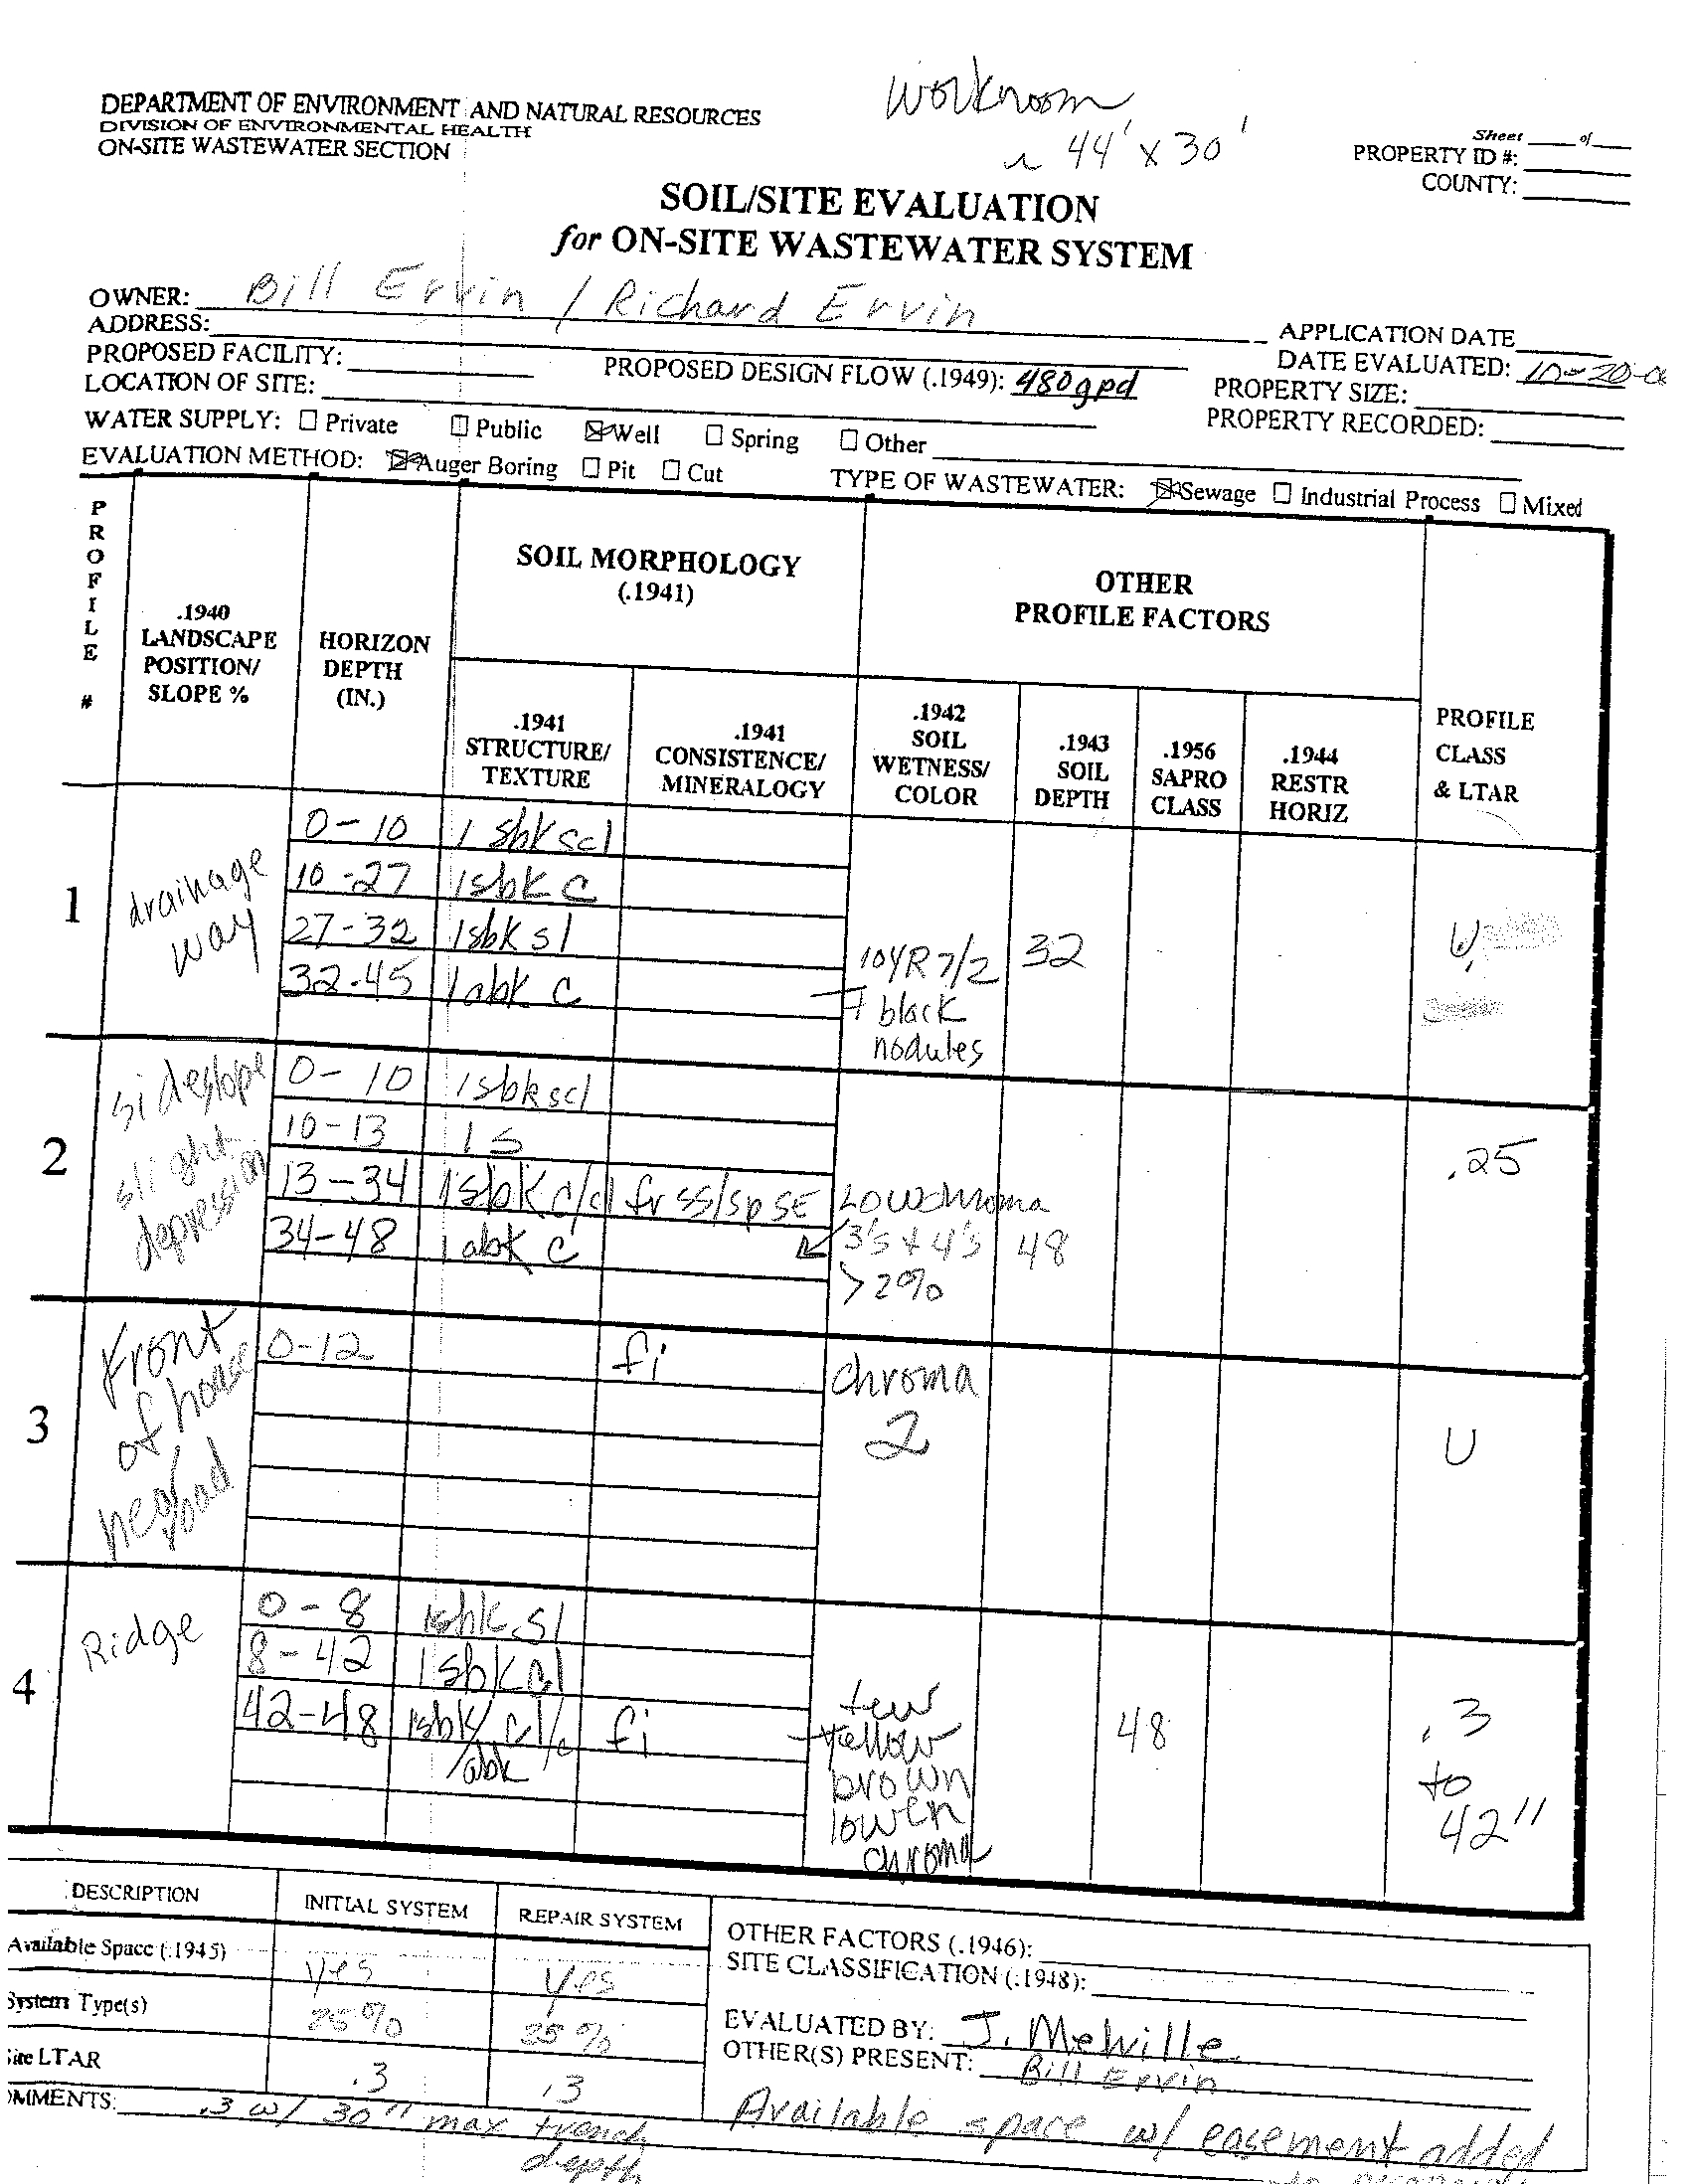 workroom
~ 44' x 30'
DEPARTMENT OF ENVIRONMENT AND NATURAL RESOURCES
DIVISION OF ENVIRONMENTAL HEALTH
ON-SITE WASTEWATER SECTION
Sheet ____ of ____
PROPERTY ID #:
COUNTY:
SOIL/SITE EVALUATION
for ON-SITE WASTEWATER SYSTEM
OWNER: Bill Ervin / Richard Ervin
ADDRESS:
APPLICATION DATE
PROPOSED FACILITY:
PROPOSED DESIGN FLOW (.1949): 480gpd
DATE EVALUATED: 10-20-0
LOCATION OF SITE:
PROPERTY SIZE:
PROPERTY RECORDED:
WATER SUPPLY: ☐ Private ☐ Public ☒ Well ☐ Spring ☐ Other
EVALUATION METHOD: ☒ Auger Boring ☐ Pit ☐ Cut
TYPE OF WASTEWATER: ☒ Sewage ☐ Industrial Process ☐ Mixed
PROFILE #
.1940 LANDSCAPE POSITION/ SLOPE %
HORIZON DEPTH (IN.)
SOIL MORPHOLOGY (.1941)
.1941 STRUCTURE/ TEXTURE
.1941 CONSISTENCE/ MINERALOGY
OTHER PROFILE FACTORS
.1942 SOIL WETNESS/ COLOR
.1943 SOIL DEPTH
.1956 SAPRO CLASS
.1944 RESTR HORIZ
PROFILE CLASS & LTAR
1 drainage way
0-10 1 sbk scl
10-27 1sbk c
27-32 1sbk sl
32-45 1abk c
10YR 7/2 black nodules
32
U
2 sideslope slight depression
0-10 1sbk scl
10-13 1 s
13-34 1sbk c/cl fr ss/sp SE
34-48 1 abk c
Low chroma 3's + 4's > 2%
48
.25
3 Front of house near road
0-12 fi
chroma 2
U
4 Ridge
0-8 1sbk sl
8-42 1sbk cl
42-48 1sbk/abk cl/c fi
few yellow brown lower chroma
48
.3 to 42"
DESCRIPTION INITIAL SYSTEM REPAIR SYSTEM
Available Space (.1945) yes yes
System Type(s) 25% 25%
Site LTAR .3 .3
OMMENTS: .3 w/ 30" max trench depth
OTHER FACTORS (.1946):
SITE CLASSIFICATION (.1948):
EVALUATED BY: J. Melville
OTHER(S) PRESENT: Bill Ervin
Available space w/ easement added